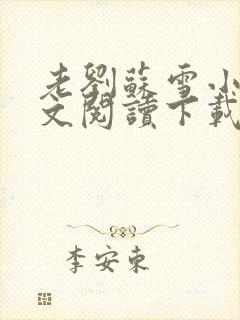 老劉蘇雪小
文閱讀下載
李安東